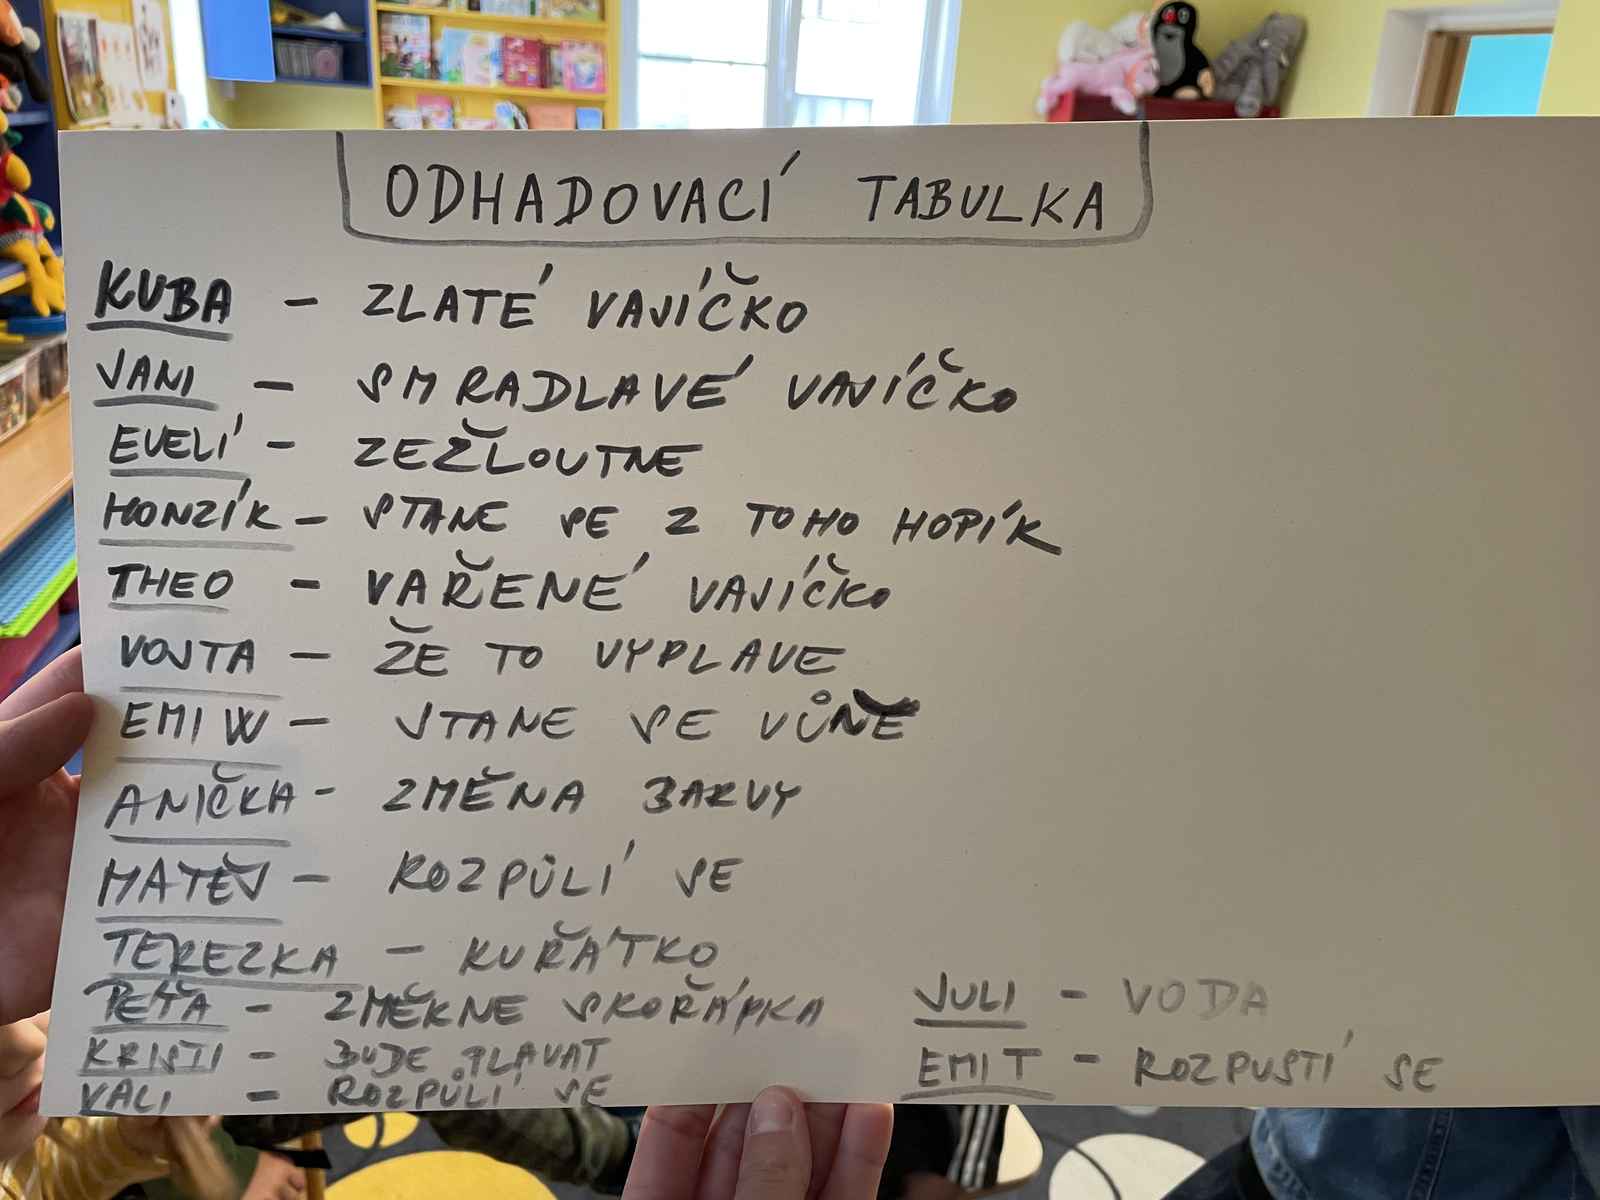 ODHADOVACÍ TABULKA
KUBA - ZLATÉ VAJÍČKO
JANI - SMRADLAVÉ VAJÍČKO
EVELÍ - ZEŽLOUTNE
HONZÍK - STANE SE Z TOHO HOPÍK
THEO - VAŘENÉ VAJÍČKO
VOJTA - ŽE TO VYPLAVE
EMI W - STANE SE VŮNĚ
ANIČKA - ZMĚNA BARVY
MATĚJ - ROZPŮLÍ SE
TEREZKA - KUŘÁTKO
PEŤA - ZMĚKNE SKOŘÁPKA
KRISTI - BUDE PLAVAT
VALI - ROZPŮLÍ SE
JULI - VODA
EMI T - ROZPUSTÍ SE